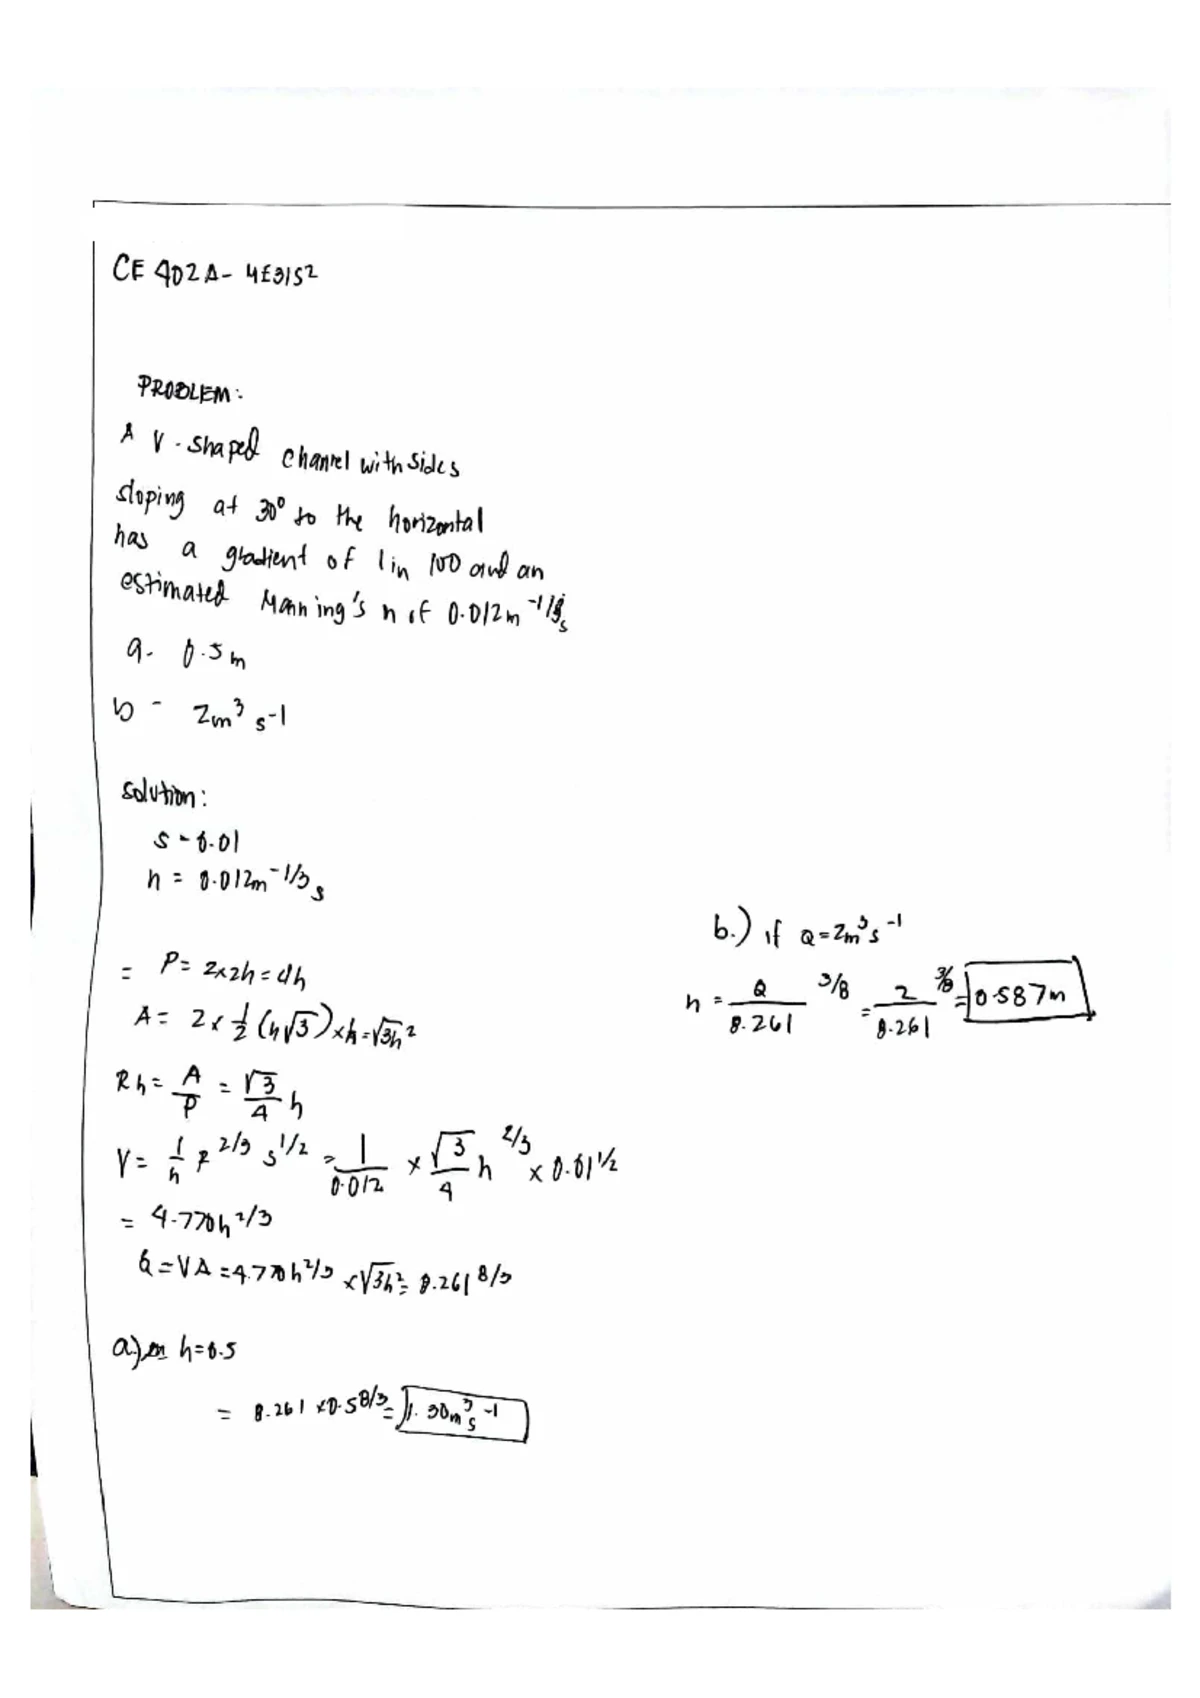 CE 402A - 4E31S2
PROBLEM:
A V-shaped channel with sides
sloping at 30° to the horizontal
has a gradient of 1 in 100 and an
estimated Manning's n of 0.012m^-1/3 s
a- 0.5m
b- 2m³ s-1
solution:
S - 0.01
n = 0.012m^-1/3 s
= P= 2x2h = 4h
A = 2 x 1/2 (h√3) x h = √3h²
Rh = A/P = √3/4 h
V = 1/n R^2/3 S^1/2 = 1/0.012 x √3/4 h^2/3 x 0.01^1/2
= 4.770h^2/3
Q = VA = 4.770h^2/3 x √3h² = 8.261^8/3
a.) h=0.5
= 8.261 x 0.5^8/3 = 1.30m³s^-1
b.) if Q = 2m³s^-1
h = Q/8.261 ^3/8 = 2/8.261 ^3/8 = 0.587m